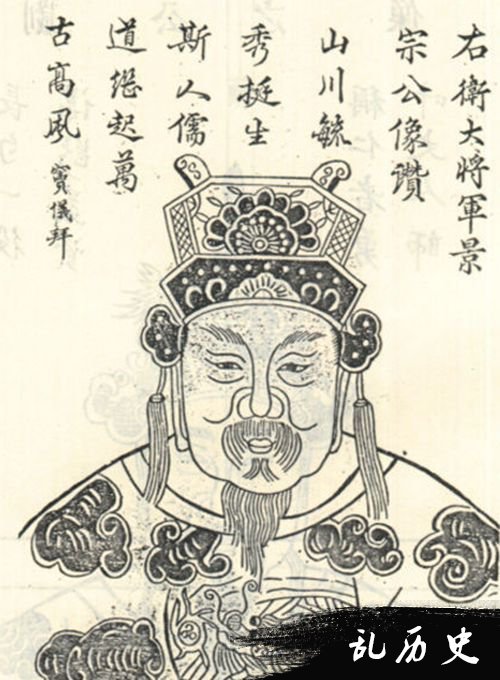 右衛大將軍景
宗公像讚
山川毓
秀挺生
斯人儒
道継起萬
古髙風 竇儀拜
乱历史